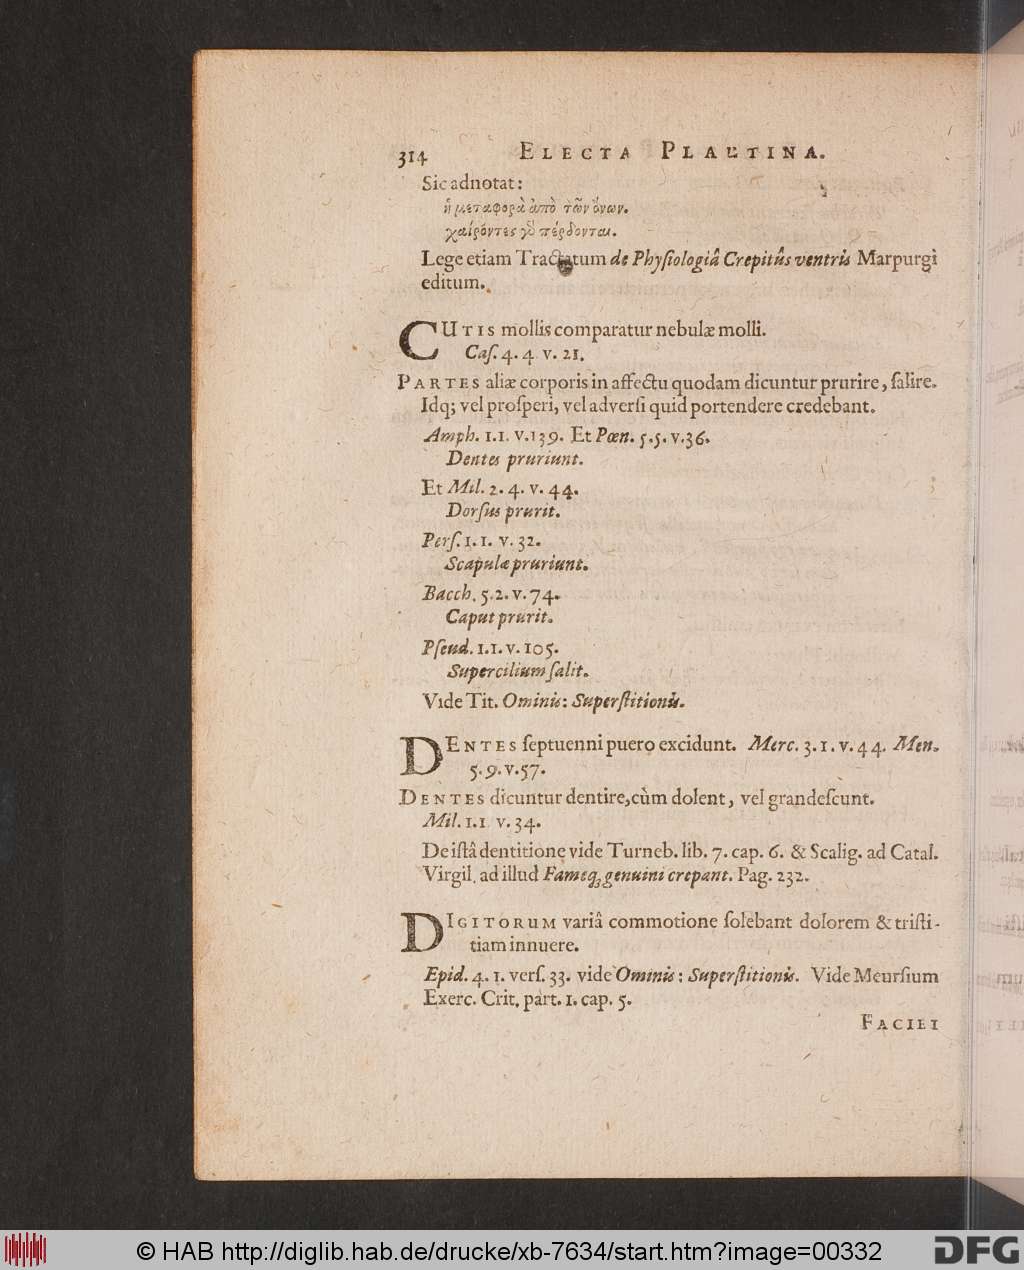 314 ELECTA PLAUTINA.
Sic adnotat:
ἡ μεταφορὰ ἀπὸ τῶν ὄνων.
χαίροντες γὸ πέρδονται.
Lege etiam Tractatum de Phyſiologiâ Crepitûs ventris Marpurgi
editum.
CUTIS mollis comparatur nebulæ molli.
Caſ. 4. 4. v. 21.
PARTES aliæ corporis in affectu quodam dicuntur prurire, ſalire.
Idq; vel proſperi, vel adverſi quid portendere credebant.
Amph. 1.1. v.139. Et Pœn. 5.5. v.36.
Dentes pruriunt.
Et Mil. 2. 4. v. 44.
Dorſus prurit.
Perſ. 1.1. v. 32.
Scapulæ pruriunt.
Bacch. 5.2. v. 74.
Caput prurit.
Pſeud. 1.1. v. 105.
Supercilium ſalit.
Vide Tit. Ominis: Superſtitionis.
DENTES ſeptuenni puero excidunt. Merc. 3. 1. v. 44. Men.
5. 9. v. 57.
DENTES dicuntur dentire, cùm dolent, vel grandeſcunt.
Mil. 1.1 v. 34.
De iſtâ dentitione vide Turneb. lib. 7. cap. 6. & Scalig. ad Catal.
Virgil. ad illud Fameq; genuini crepant. Pag. 232.
DIGITORUM variâ commotione ſolebant dolorem & triſti-
tiam innuere.
Epid. 4. 1. verſ. 33. vide Ominis: Superſtitionis. Vide Meurſium
Exerc. Crit. part. 1. cap. 5.
FACIEI
© HAB http://diglib.hab.de/drucke/xb-7634/start.htm?image=00332
DFG